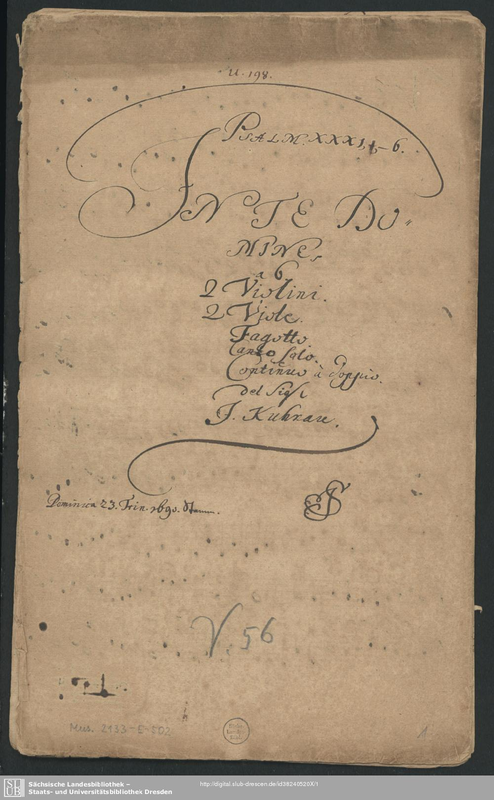 U. 198.
PSALM. XXXI, 1-6.
IN TE DO=
MINE,
à 6
2 Violini.
2 Viole.
Fagotto.
Canto solo.
Continuo à doppio.
del Sig.
J. Kuhnau.
Dominica 23. Trin. 1690.
V. 56
Mus. 2133-E-502
1
Sächsische Landesbibliothek –
Staats- und Universitätsbibliothek Dresden
http://digital.slub-dresden.de/id392495208/1